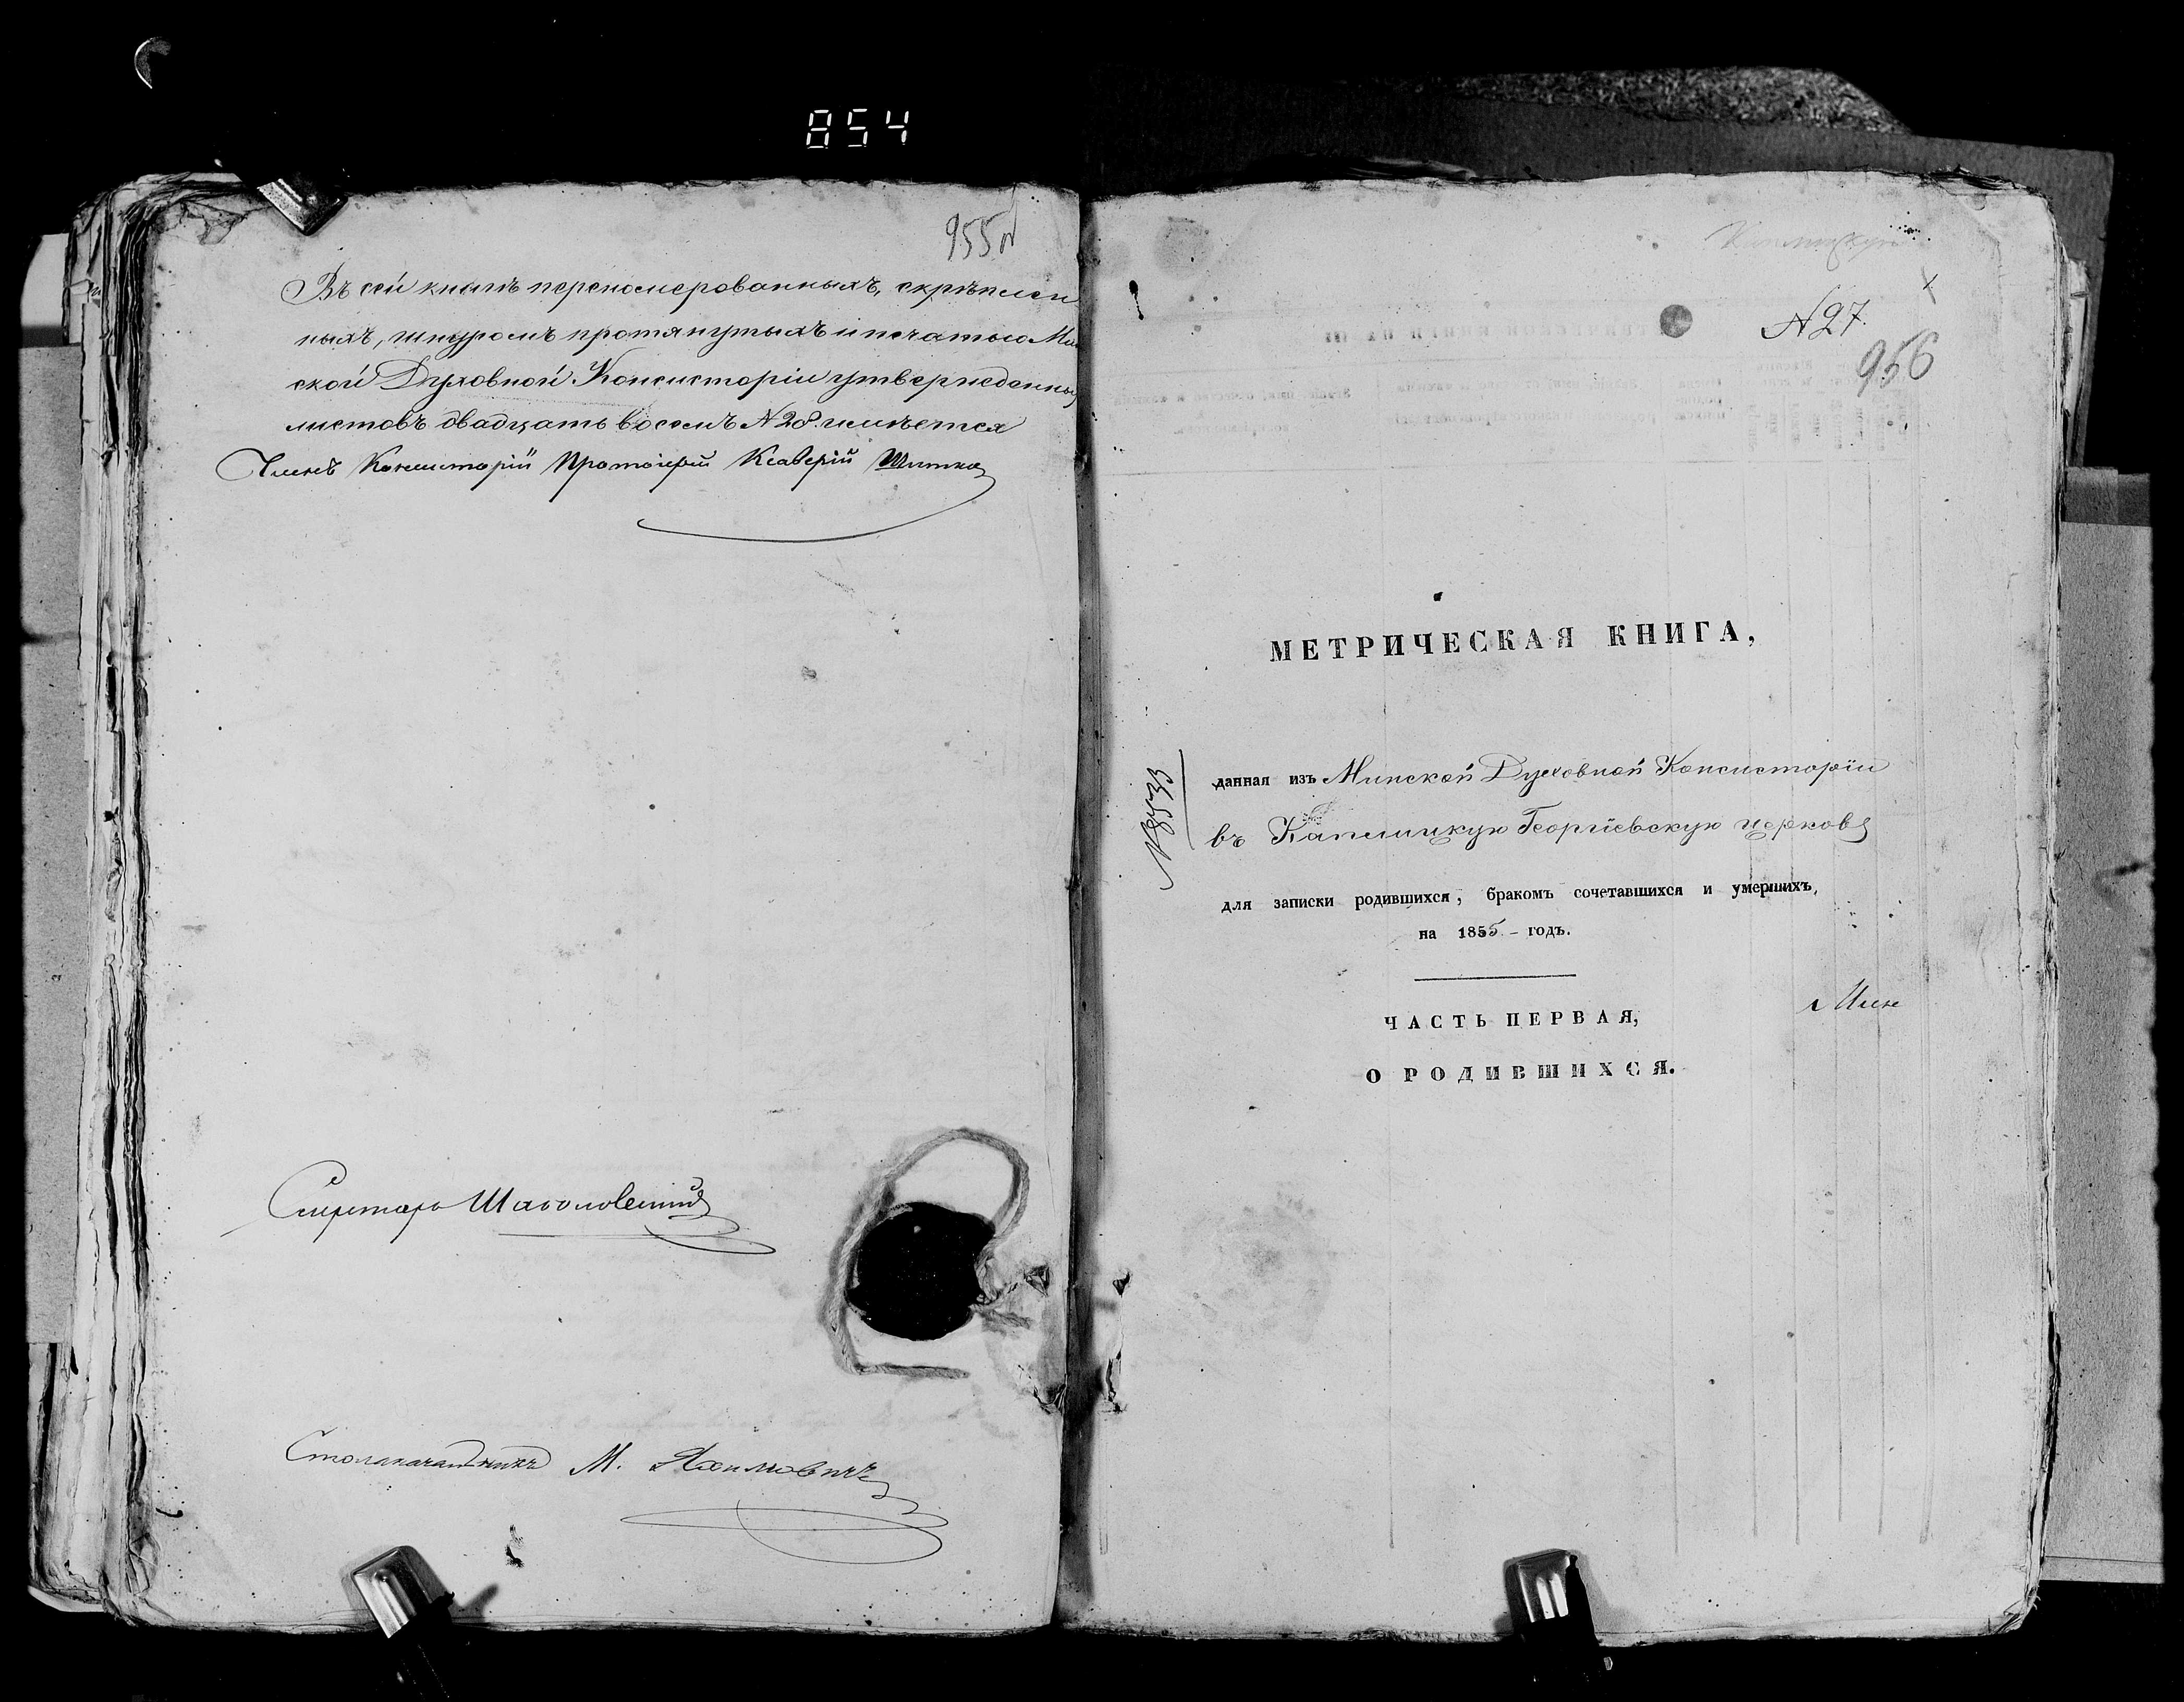 854
955
Въ сей книгѣ перенумерованныхъ, скрѣплен
ныхъ, шнуромъ протянутыхъ и печатью Ми
ской Духовной Консисторіи утвержденных
листовъ двадцать восемь №28. имѣется
Членъ Консисторіи Протоіерей Ксаверій
Секретарь
Столоначальникъ М. Яхимовичъ
№27.
956
МЕТРИЧЕСКАЯ КНИГА,
№8533
данная изъ Минской Духовной Консисторіи
въ Капличкую Георгіевскую церковь
для записки родившихся, бракомъ сочетавшихся и умершихъ,
на 1855 - годъ.
ЧАСТЬ ПЕРВАЯ,
О РОДИВШИХСЯ.